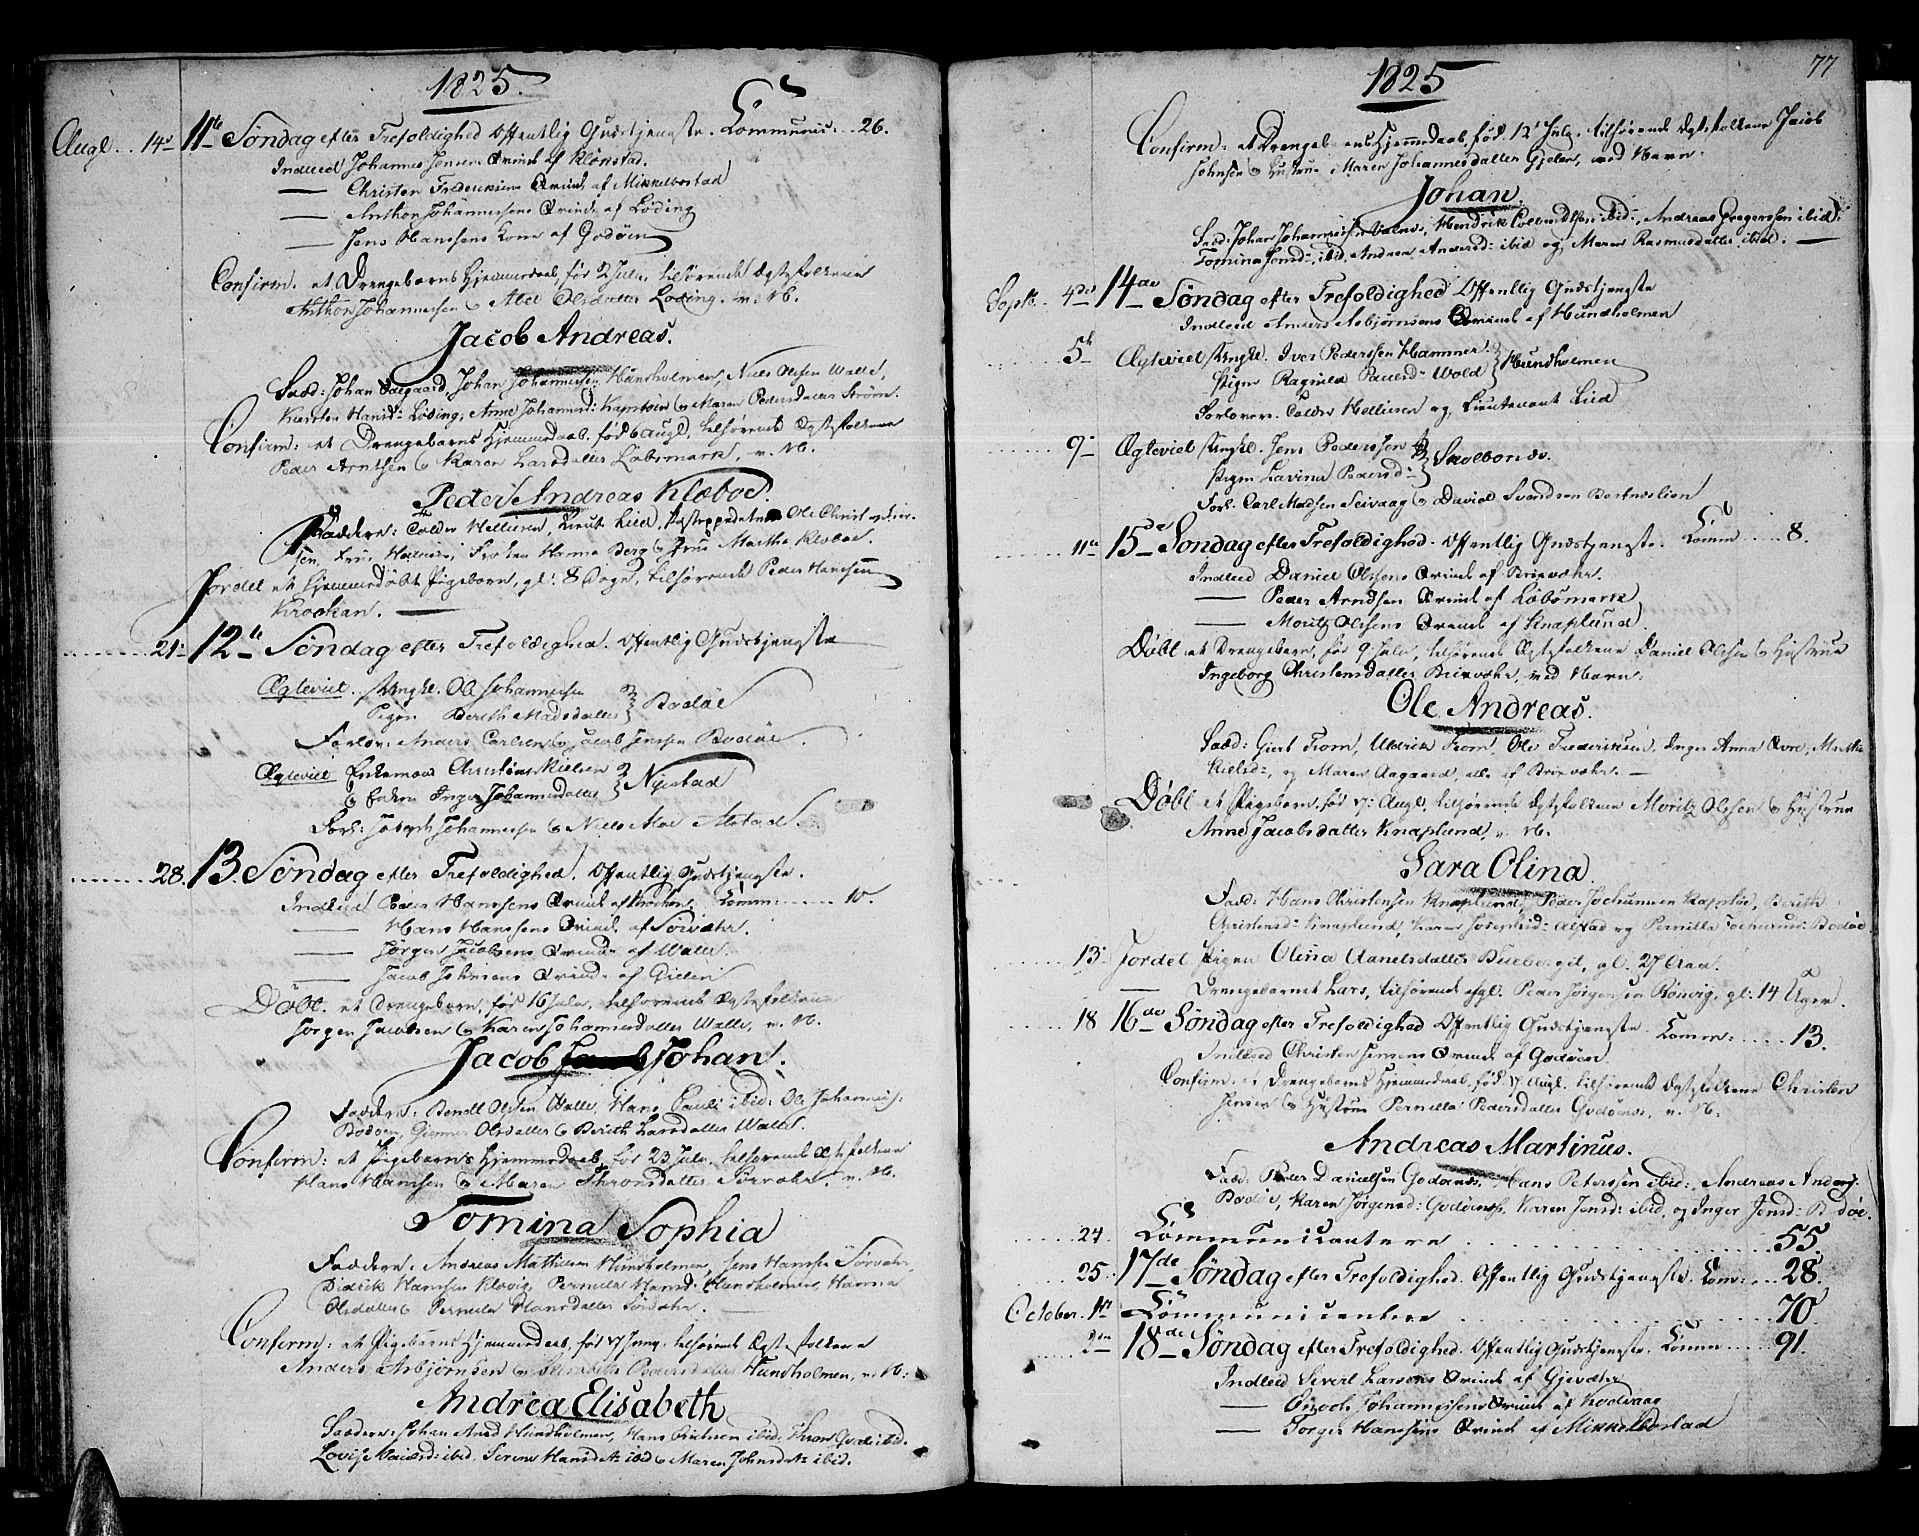 1825.
Augl. 14de 11te Søndag efter Trefoldighed Offentlig Gudstjeneste. Communic: 26.
Indleed Johannes Jensens Qvinde af Klønstad.
— Christen Frederiksens Qvinde af Mikkelbostad
— Anthon Johannessens Qvinde af Løding
— Jens Hanssens Kone af Godøen
Confirm: et Drengebarns Hjemmedaab, fød 2 Juli, tilhørende Egtefolkene
Anthon Johannessen & Abel Olsdatter Løding. n. N.
Jacob Andreas.
Fad: Johan Odegaard, Johan Johannessen Hundholmen, Niels Olsen Walle,
Kirsten Hansd: Løding, Anne Johannesd: & Maren Pedersdatter Strøm.
Confirm: et Drengebarns Hjemmedaab, fød 6 Augl, tilhørende Egtefolkene
Peder Arntsen & Karen Larsdatter Løbsmark, n. N.
Peder Andreas Klæboe.
Faddere: Calder Hellesen, Lieut: Lied, Ole Christophersen,
Fru Hellesen, Frøken Hanna Berg & Frue Martha Klæboe.
Jordet et hjemmedøbt Pigebarn, gl: 8 Dage, tilhørende Peder Hanssen
Kroekan.
21de 12te Søndag efter Trefoldighed. Offentlig Gudstjeneste
Ægteviet. Ungkl. Ole Johannessen
Pigen Berith Madsdatter } Bodøe
Forlov: Anders Carlsen & Jacob Jenssen Bodøe.
Ægteviet Enkemand Christen Nielsen
& Enken Inger Johannesdatter } Nystad
Forl: Joseph Johannessen & Niels Moe Alstad.
28. 13. Søndag efter Trefoldighed. Offentlig Gudstjeneste.
Indleed Peder Hanssens Qvinde af Kroekan. Comm: 10.
— Hans Hanssens Qvinde af Sørvær.
— Jørgen Jacobsens Qvinde af Walle.
— Jacob Johnsens Qvinde af Gielen
Døbt et Drengebarn, fød 16 Julii, tilhørende Egtefolkene
Jørgen Jacobsen & Karen Johannesdatter Walle, n. N.
Jacob Johan.
Faddere: Bendt Olsen Walle, Hans Pauli ibid: Ole Johannes:
Bodøen, Gunner Olsdatter & Berith Larsdatter Walle.
Confirm: et Pigebarns Hjemmedaab, fød 23 Julii, tilhørende Egtefolkene
Hans Hanssen & Maren Thronsdatter Sørvær. n. N.
Tomina Sophia
Faddere: Andreas Mathiesen Hundholmen, Jens Hanssen Sørvær,
Didrik Hanssen Klevig, Pernilla Hansd: Hundholmen, Hanna
Olsdatter & Pernilla Hansdatter Sørvær.
Confirm: et Pigebarns Hjemmedaab, fød 17 Juny, tilhørende Egtefolkene
Anders Asbjørnsen & Elisabeth Pedersdatter Hundholmen, n. N:
Andrea Elisabeth
Faddere: Johan Hundholmen, Hans ibid: Thron ibid.
Lovise ibid. Seren Hansdat: ibid & Maren Johnsdat: ibid.
1825
77
Confirm: et Drengebarns Hjemmedaab, fød 12 July, tilhørende Egtefolkene Jacob
Johnsen & Hustrue Maren Johannesdatter Gjelen, med Navn.
Johan.
Fad: Johan Johannessen, Hendrik ibid: Andreas Gregerssen ibid:
Tomina Jensd: ibid, Andrea Andersd: ibid og Maren Rasmusdatter ibid. —
Septb. 4de 14de Søndag efter Trefoldighed Offentlig Gudstjeneste
Indleed Anders Asbjørnsens Qvinde af Hundholmen
5t Ægteviet Ungkl. Iver Pederssen Hammer
Pigen Ragnild Paulsd: Wold } Hundholmen
Forlovere. Calder Hellesen og Lieutenant Lied
9 Ægteviet Ungkl. Jens Pederssen
Pigen Lavina Pedersd: } Skolbones.
Forl: Carl Madsen Seivaag & David Svendsen Bertneslien
11te 15de Søndag efter Trefoldighed. Offentlig Gudstjeneste. Comm 8.
Indleed Daniel Olsens Qvinde af Brixvær.
— Peder Arndsen Qvinde af Løbsmark
— Moritz Olsens Qvinde af Knaplund
Døbt et Drengebarn, fød 9 Julii, tilhørende Egtefolkene Daniel Olsen & Hustrue
Ingeborg Christensdatter Brixvær, med Navn:
Ole Andreas.
Fad: Giert From, Uldrik From, Ole Frederiksen, Inger Anna, Martha
Nielsd:, og Maren Aagaard, alle af Brixvær. —
Døbt et Pigebarn, fød 7 Augl, tilhørende Egtefolkene Moritz Olsen & Hustrue
Anne Jacobsdatter Knaplund, n. N.
Sara Olina
Fad: Hans Christensen Knaplund, Peder Jochumsen, Berith
Christensd: Knaplund, Karen Josephsd: Alstad og Pernilla Jochumsd: Bodøe
13 Jordet Pigen Olina, gl. 27 Aar.
— Drengebarnet Lars, tilhørende Peder Jørgensen Rønvig, gl: 14 Uger.
18 16de Søndag efter Trefoldighed Offentlig Gudstjeneste. Comm: 13.
Indleed Christen Jensens Qvinde af Godøen.
Confirm: et Drengebarns Hjemmedaab, fød 7 Augl. tilhørende Egtefolkene Christen
Jensen & Hustrue Pernilla Pedersdatter Godønes, n. N.
Andreas Martinus.
Fad: Peder Danielsen Godønes, Hans Peterssen ibid: Andreas Anders:
Bodøe, Karen Jørgensd: Godønes, Karen Jensd: ibid, og Inger Jensd: Bodøe.
24. Communicantere 55.
25. 17de Søndag efter Trefoldighed. Offentlig Gudstjeneste. Com: 28.
October. 1te Communicantere 70
2den 18de Søndag efter Trefoldighed. Offentlig Gudstjeneste. Comm 91.
Indleed Sivert Larsens Qvinde af Gjevær
— Enoch Johannessens Qvinde af Kodvaag
— Jørgen Hanssens Qvinde af Mikkelbostad